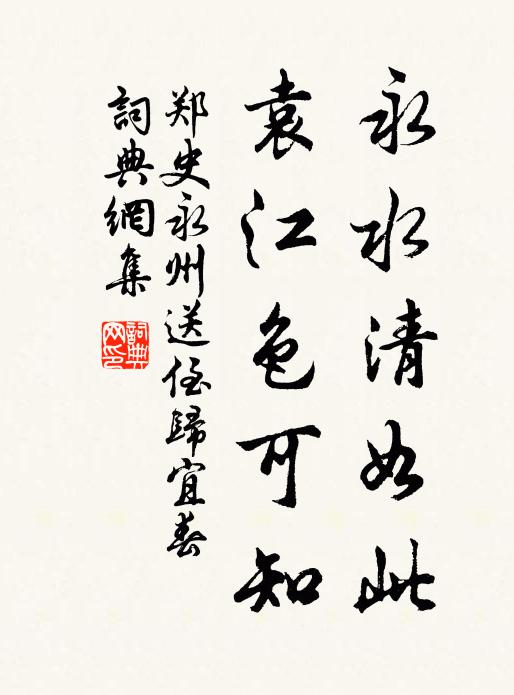 永水清如此
袁江色可知
郑史永州送侄歸宜春
詞典網集
詞典网印